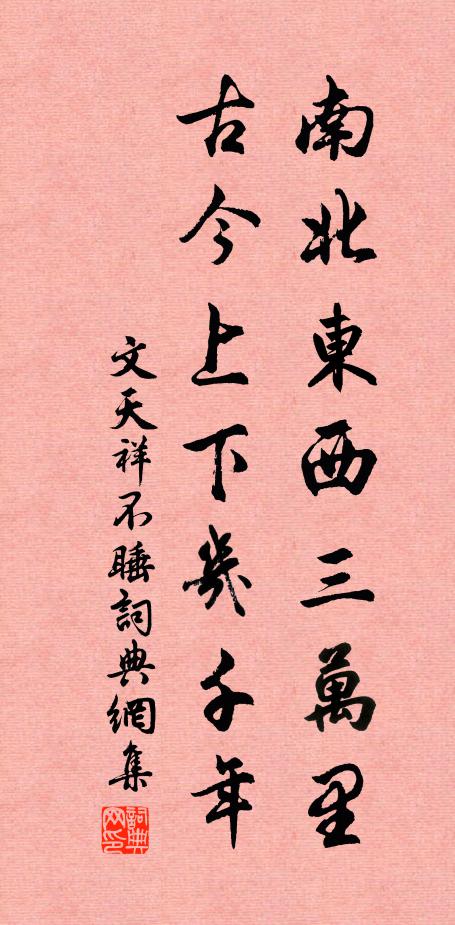 南北東西三萬里
古今上下幾千年
文天祥不睡詞典網集
詞典网印